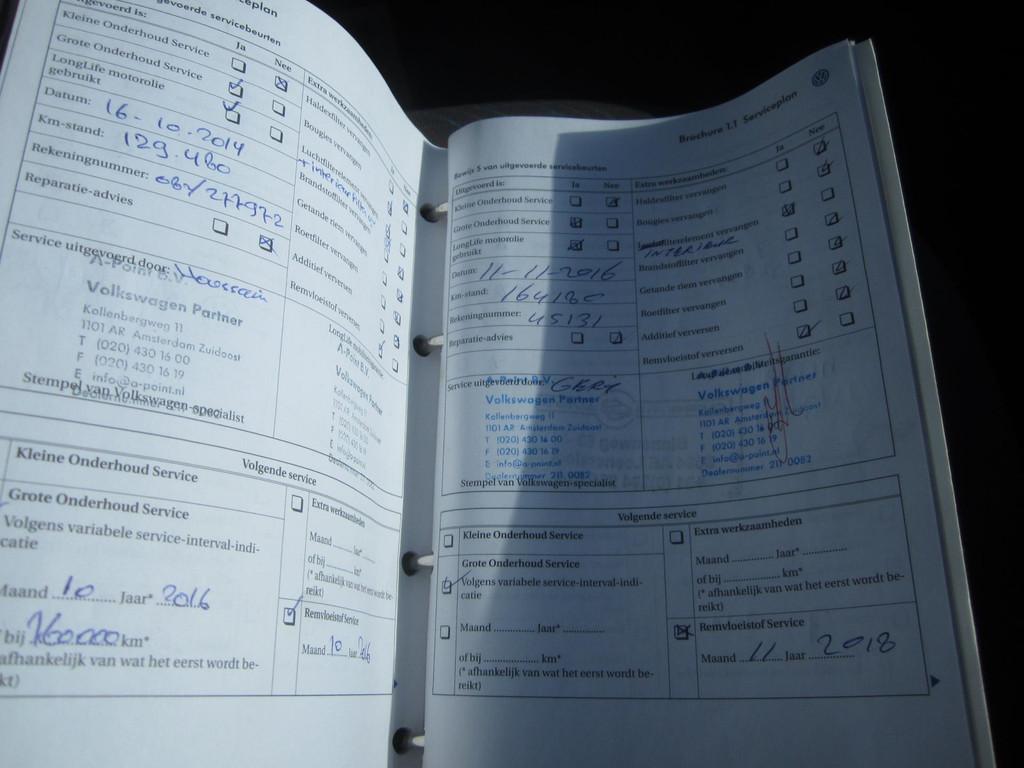 ceplan
gevoerde servicebeurten
Ja
Nee
Kleine Onderhoud Service
Grote Onderhoud Service
LongLife motorolie
gebruikt
Datum: 16-10-2014
Km-stand: 129.480
Rekeningnummer:
Reparatie-advies
Extra werkzaamheden
Haldexfilter vervangen
Bougies vervangen
Luchtfilterelement vervangen
Brandstoffilter vervangen
Getande riem vervangen
Roetfilter vervangen
Additief verversen
Remvloeistof verversen
Service uitgevoerd door:
A-Point B.V.
Volkswagen Partner
Kollenbergweg 11
1101 AR Amsterdam Zuidoost
T (020) 430 16 00
F (020) 430 16 19
E info@a-point.nl
Stempel van Volkswagen-specialist
A-Point B.V.
Volkswagen
Volgende service
Kleine Onderhoud Service
Grote Onderhoud Service
Volgens variabele service-interval-indi-
catie
Maand 10 Jaar* 2016
bij 160.000 km*
afhankelijk van wat het eerst wordt be-
kt)
Extra werkzaamheden
Maand ........ Jaar* ........
of bij ............ km*
(* afhankelijk van wat het eerst wordt be-
reikt)
Remvloeistof Service
Maand 10 Jaar 2016
Brochure 1.1 Serviceplan
Bewijs 5 van uitgevoerde servicebeurten
Uitgevoerd is:
Ja
Nee
Kleine Onderhoud Service
Grote Onderhoud Service
LongLife motorolie
gebruikt
Datum: 11-11-2016
Km-stand: 164180
Rekeningnummer: 45131
Reparatie-advies
Extra werkzaamheden:
Ja
Nee
Haldexfilter vervangen
Bougies vervangen
filterelement vervangen
INTERIEUR
Brandstoffilter vervangen
Getande riem vervangen
Roetfilter vervangen
Additief verversen
Remvloeistof verversen
Service uitgevoerd door: GERY
A-Point B.V.
Volkswagen Partner
Kollenbergweg 11
1101 AR Amsterdam Zuidoost
T (020) 430 16 00
F (020) 430 16 19
E info@a-point.nl
Dealernummer 211 0082
Stempel van Volkswagen-specialist
Volkswagen Partner
Kollenbergweg
1101 AR Amsterdam Zuidoost
T (020) 430 16
F (020) 430 16 19
E info@a-point.nl
Dealernummer 211 0082
Volgende service
Kleine Onderhoud Service
Grote Onderhoud Service
Volgens variabele service-interval-indi-
catie
Maand ............. Jaar* .............
of bij ............... km*
(* afhankelijk van wat het eerst wordt be-
reikt)
Extra werkzaamheden
Maand ............. Jaar* .............
of bij ............... km*
(* afhankelijk van wat het eerst wordt be-
reikt)
Remvloeistof Service
Maand 11 Jaar 2018